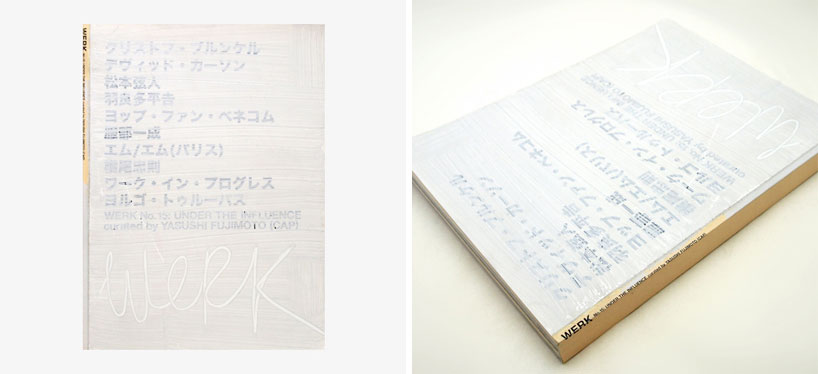 クリストフ・ブルンケル
デヴィッド・カーソン
松本弦人
羽良多平吉
ヨップ・ファン・ベネコム
服部一成
エム/エム(パリス)
横尾忠則
ワーク・イン・プログレス
ヨルゴ・トゥルーパス
WERK No.15: UNDER THE INFLUENCE
curated by YASUSHI FUJIMOTO (CAP)
WERK
WERK
WERK No.15: UNDER THE INFLUENCE curated by YASUSHI FUJIMOTO (CAP)